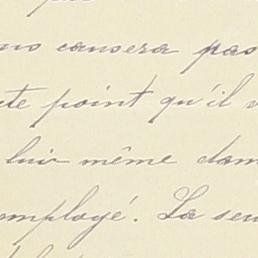 causera pas
point qu'il
lui même dan
mployé. La seu